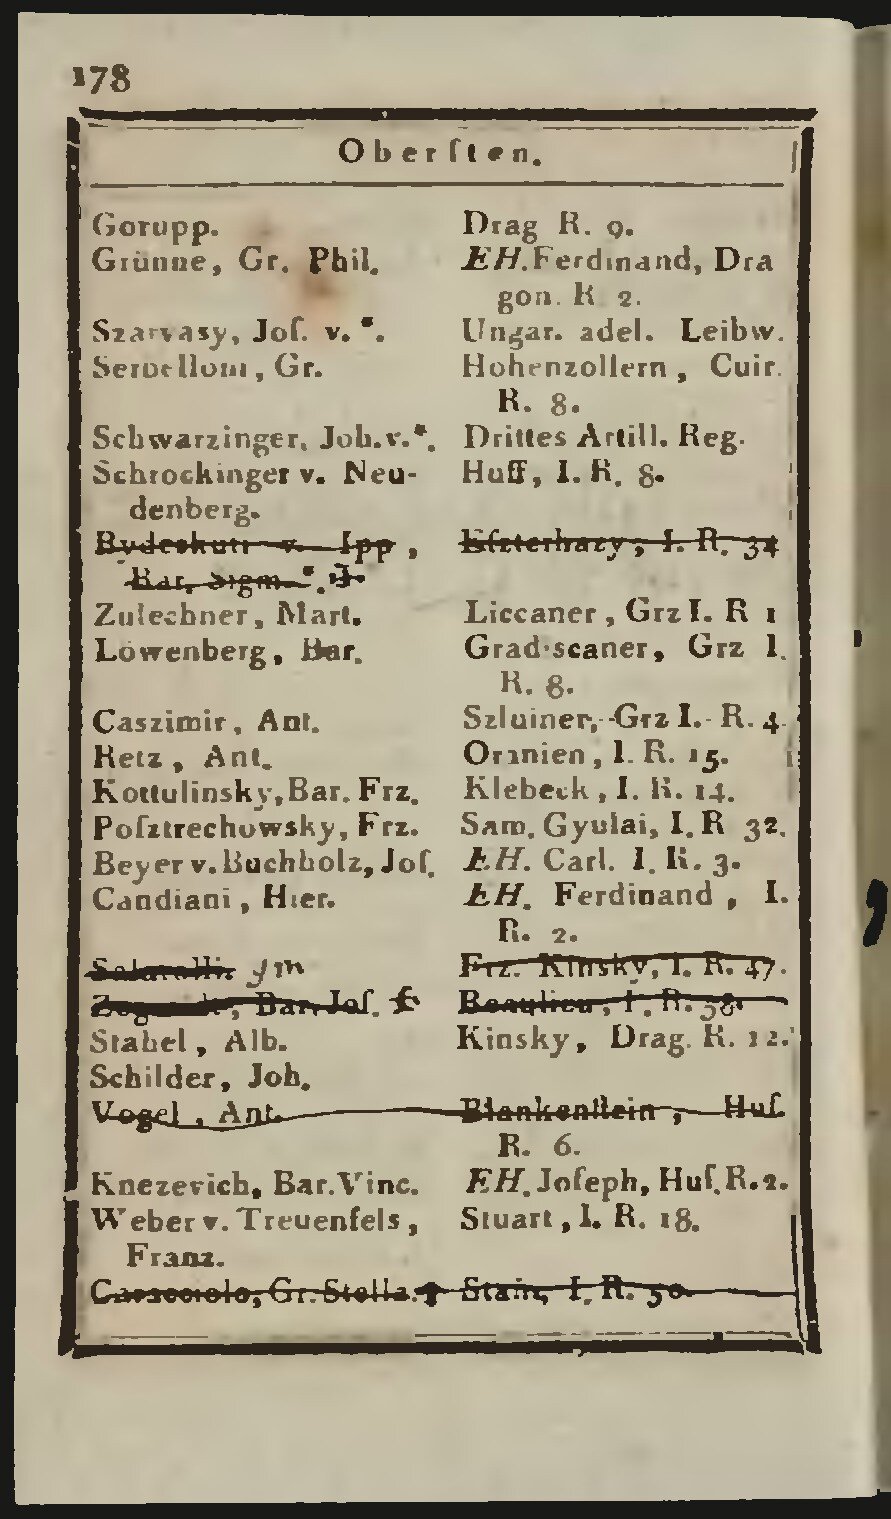 178
Oberſten.
Gorupp. Drag R. 9.
Grünne, Gr. Phil. EH.Ferdinand, Dra
gon. R 2.
Szarvasy, Joſ. v. *. Ungar. adel. Leibw.
Serbelloni, Gr. Hohenzollern, Cuir.
R. 8.
Schwarzinger, Joh.v.*. Drittes Artill. Reg.
Schrockinger v. Neu- Huff, I. R. 8.
denberg.
v. Ipp, Eſzterhazy, I. R. 34
Bar. Sigm. *.
Zulechner, Mart. Liccaner, Grz I. R 1
Löwenberg, Bar. Gradiscaner, Grz I.
R. 8.
Caszimir, Ant. Szluiner, Grz I. R. 4.
Retz, Ant. Oranien, I. R. 15.
Kottulinsky, Bar. Frz. Klebeck, I. R. 14.
Poſztrechowsky, Frz. Sam. Gyulai, I. R 32.
Beyer v. Buchholz, Joſ. EH. Carl. I. R. 3.
Candiani, Hier. EH. Ferdinand, I.
R. 2.
Frz. Kinsky, I. R. 47.
Bar. Joſ. Beaulieu, I. R. 58.
Stahel, Alb. Kinsky, Drag. R. 12.
Schilder, Joh.
Vogel, Ant. Blankenſtein, Huſ.
R. 6.
Knezevich, Bar. Vinc. EH. Joſeph, Huſ. R. 2.
Weber v. Treuenfels, Stuart, I. R. 18.
Franz.
Caracciolo, Gr. Stella. Stain, I. R. 50.